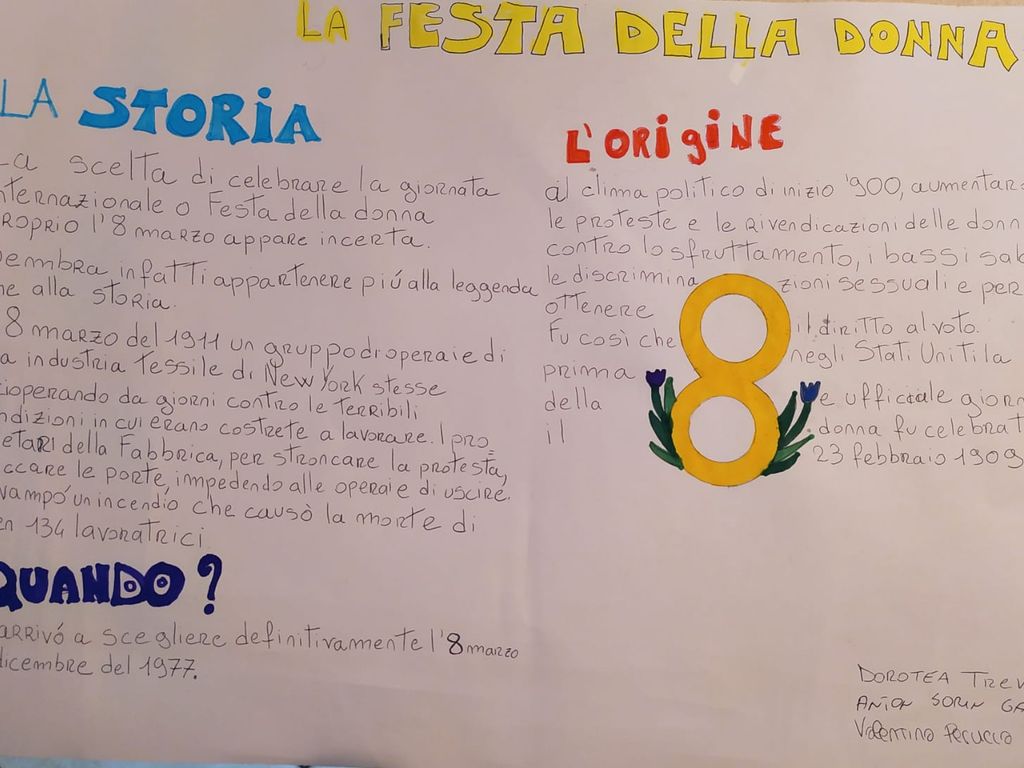 LA FESTA DELLA DONNA
LA STORIA
La scelta di celebrare la giornata
nternazionale o Festa della donna
roprio l'8 marzo appare incerta.
embra infatti appartenere piú alla leggenda
he alla storia.
8 marzo del 1911 un gruppo di operaie di
a industria tessile di New York stesse
ioperando da giorni contro le terribili
ndizioni in cui erano costrete a lavorare. I pro
etari della Fabbrica, per stroncare la protesta,
ccare le porte, impedendo alle operaie di uscire.
vampó un incendio che causò la morte di
en 134 lavoratrici
QUANDO?
arrivó a scegliere definitivamente l'8 marzo
dicembre del 1977.
L'ORIGINE
al clima politico di inizio '900, aumentar
le proteste e le rivendicazioni delle donn
contro lo sfruttamento, i bassi sal
le discriminazioni sessuali e per
ottenere il diritto al voto.
Fu così che negli Stati Uniti la
prima e ufficiale giorn
della donna fu celebrat
il 23 febbraio 1909
8
DOROTEA TREV
ANTON SORIN GA
Valentino Perucco